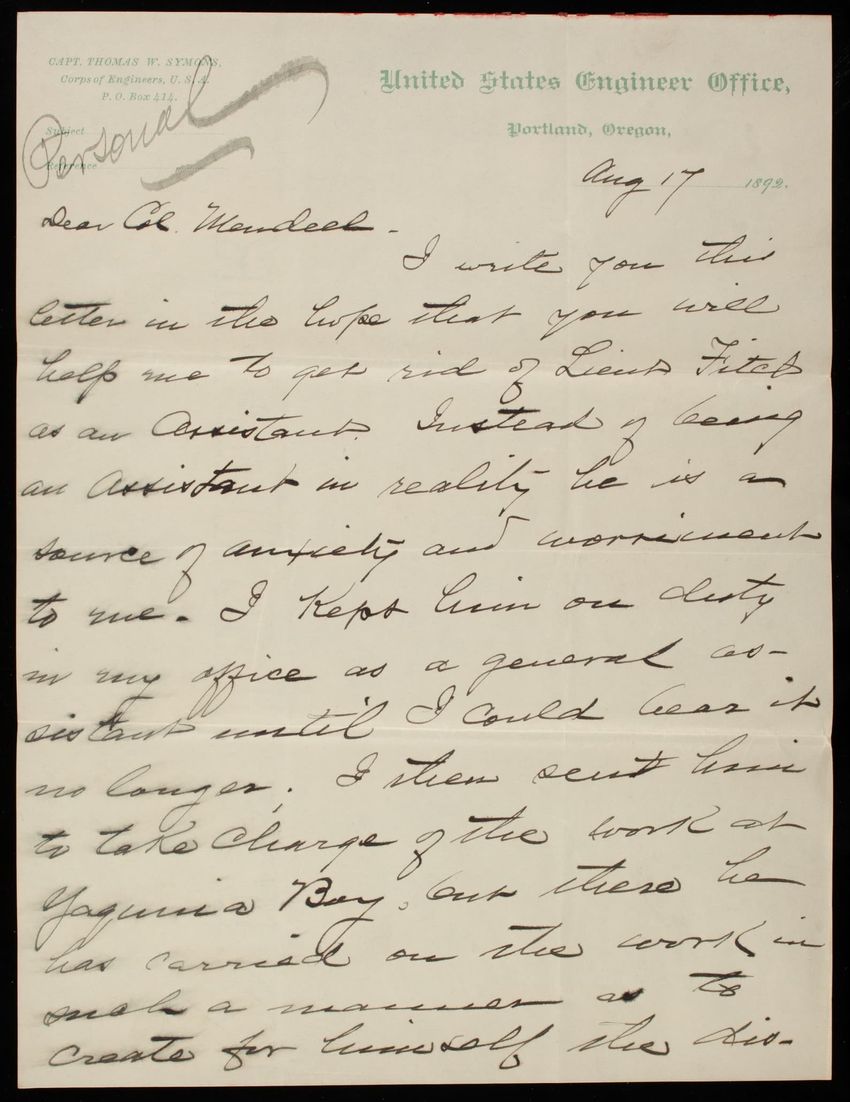 CAPT. THOMAS W. SYMONS,
Corps of Engineers, U. S. A.
P. O. Box 414.
Subject
Reference
Personal
United States Engineer Office,
Portland, Oregon,
Aug 17 1892.
Dear Col. Mendell -
I write you this
letter in the hope that you will
help me to get rid of Lieut Fitch
as an Assistant. Instead of being
an Assistant in reality he is a
source of anxiety and worriment
to me. I kept him on duty
in my office as a general as-
sistant until I could bear it
no longer. I then sent him
to take charge of the work at
Yaquina Bay, but there he
has carried on the work in
such a manner as to
create for himself the dis-